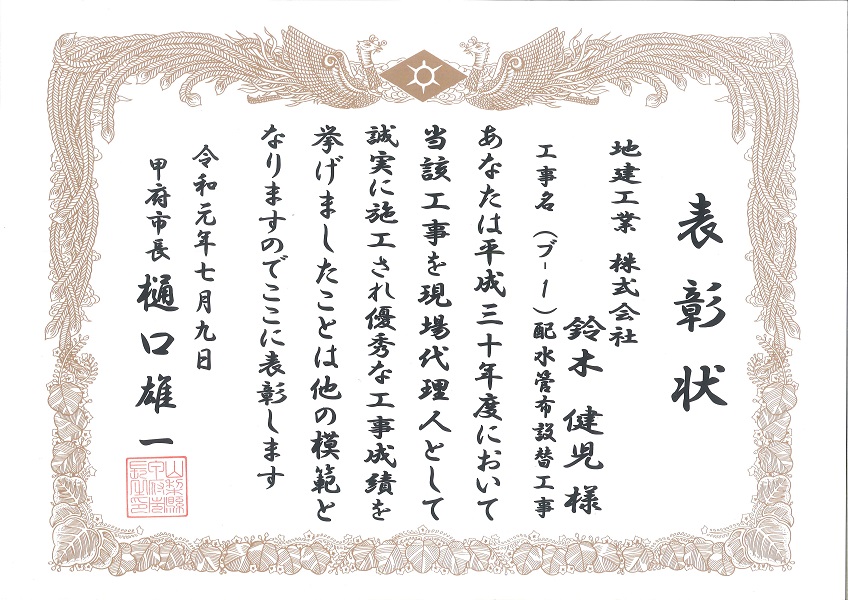 表彰状
地建工業 株式会社
鈴木 健児 様
工事名（ブ-1）配水管布設替工事
あなたは平成三十年度において
当該工事を現場代理人として
誠実に施工され優秀な工事成績を
挙げましたことは他の模範と
なりますのでここに表彰します
令和元年七月九日
甲府市長 樋口雄一